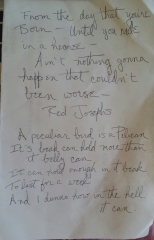 From the day that your
Born – Until you ride
in a hearse –
Ain't nothing gonna
happen that couldn't
been worse –
Red Josephs
A peculiar bird is a Pelican
It's beak can hold more than
it belly can
It can hold enough in it beak
To last for a week
And I dunno how in the hell
it can